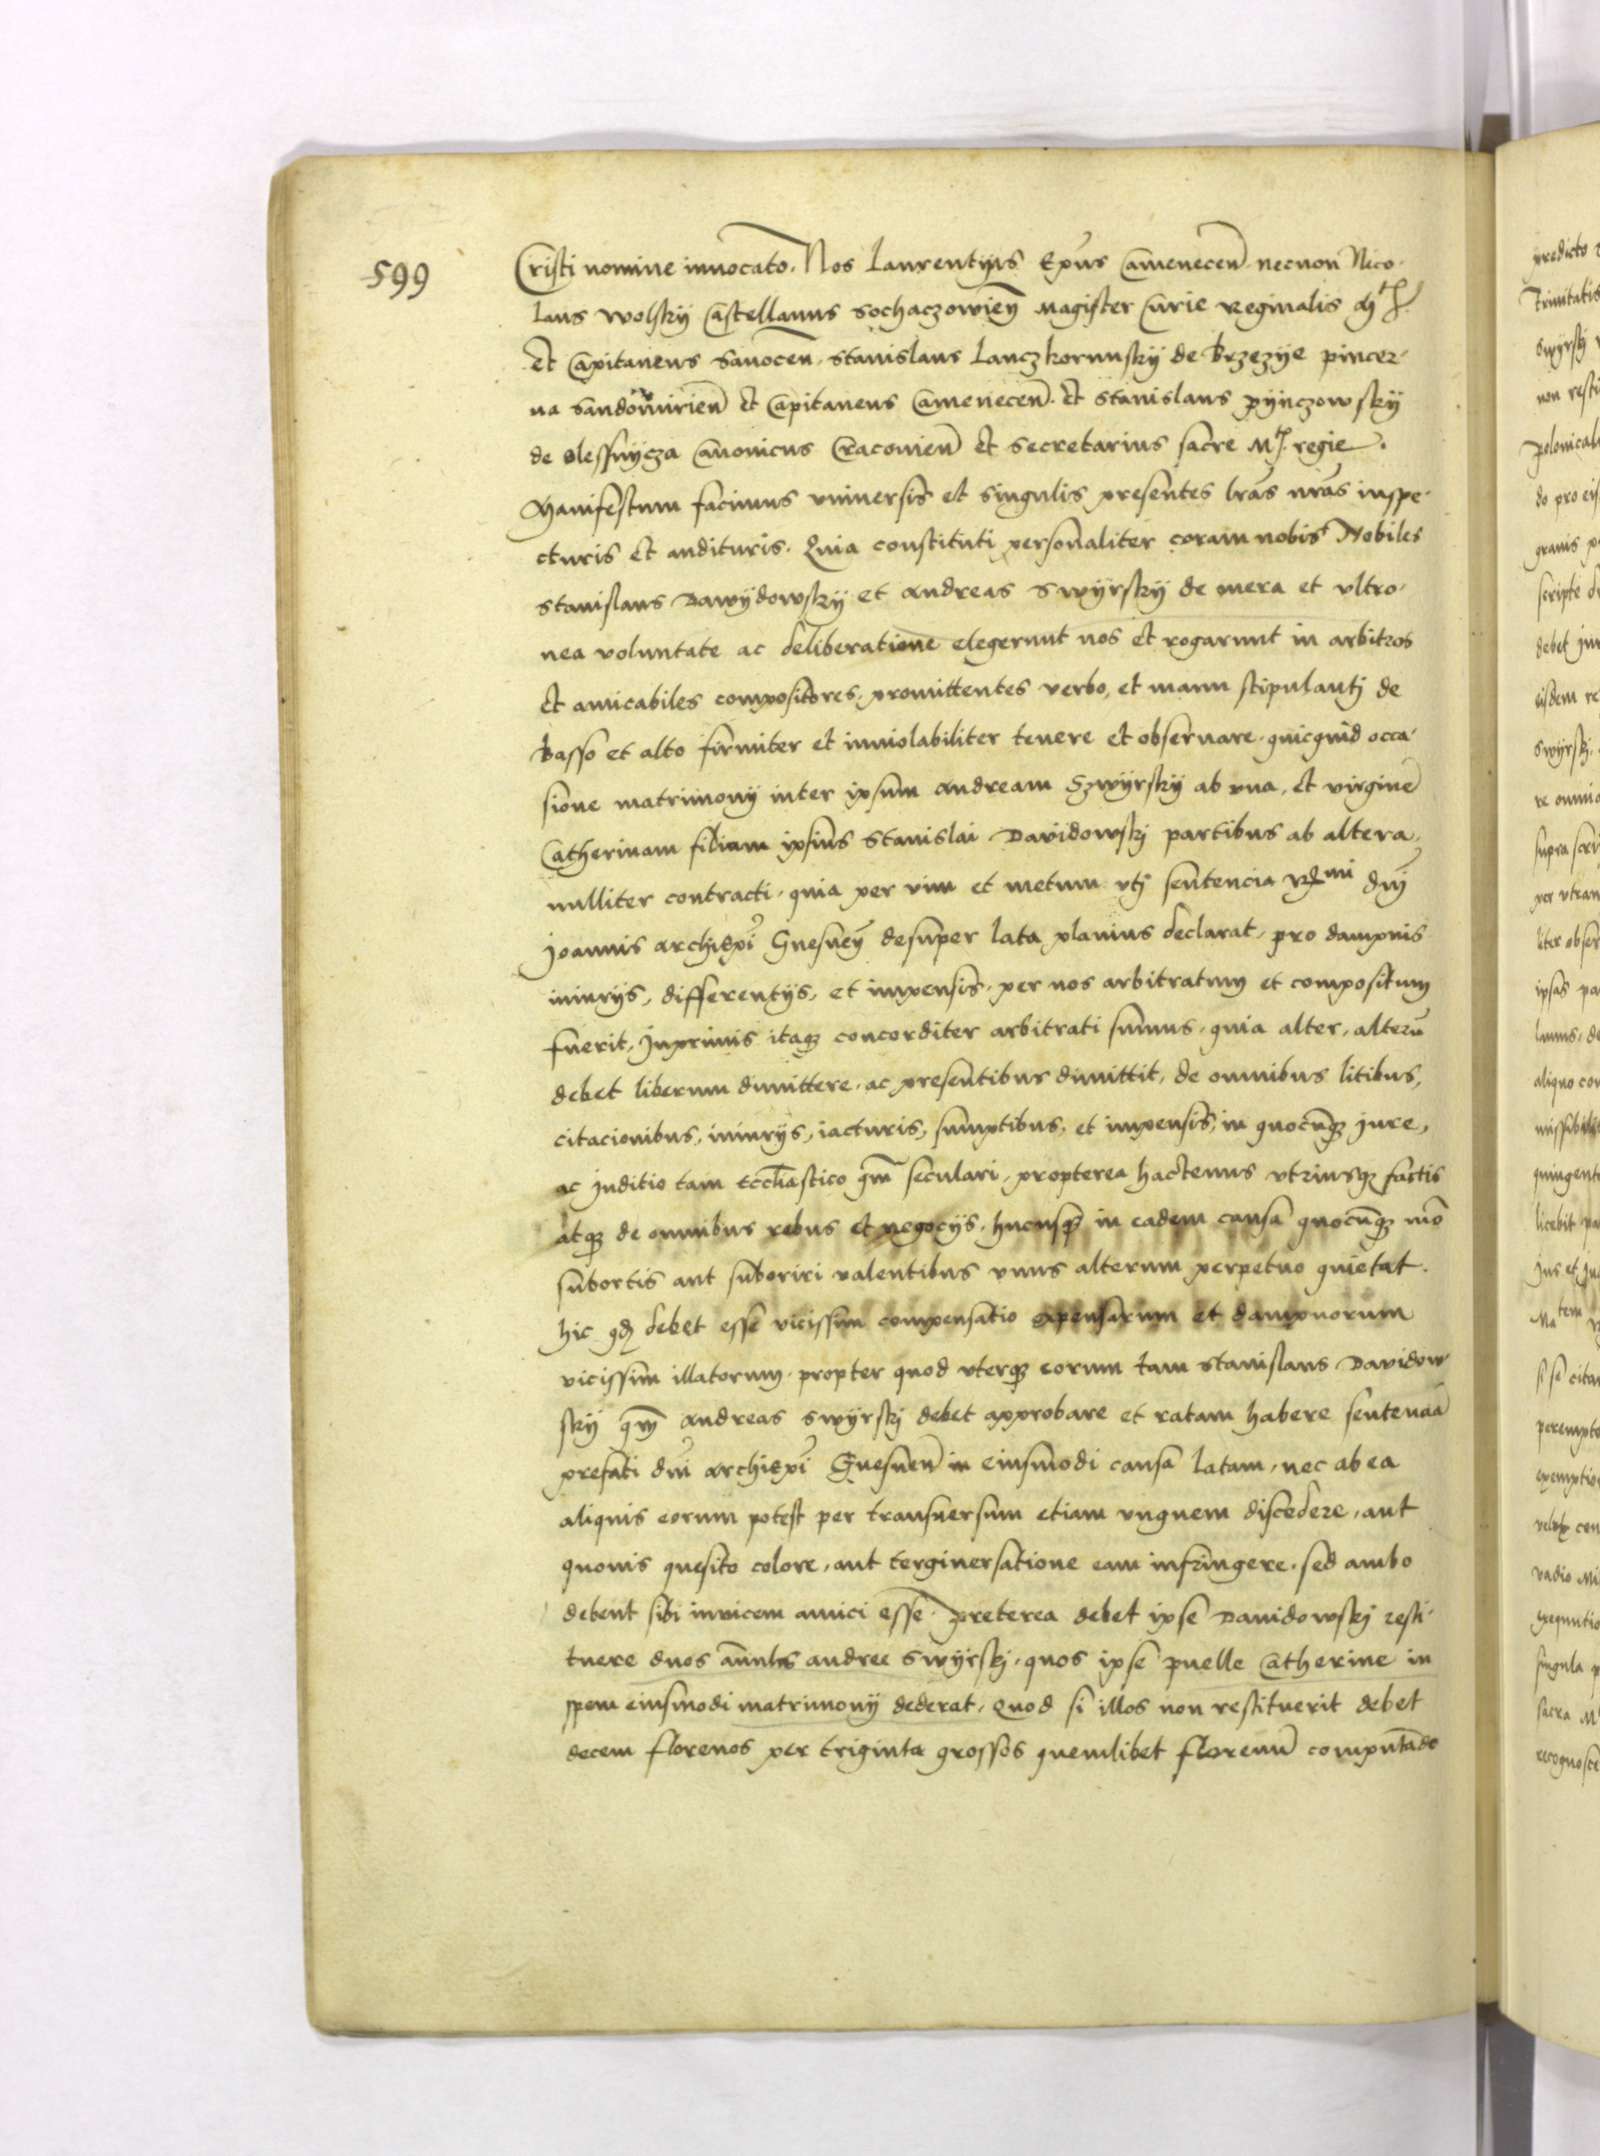 599
Cristi nomine innocato. Nos Laurentyus Epūs Camenecen̄ necnon Nico-
laus wolsky Castellanus Sochaczowien̄ Magister Curie Reginalis
Et Capitaneus Sanocen̄. Stanislaus Lanczkorunsky de Brzezye pincer-
na Sandomirien̄ Et Capitaneus Camenecen̄. Et Stanislaus pynczowsky
de Olessnycza Canonicus Cracouien̄ Et Secretarius sacre M. regie.
Manifestum facimus vniuersis et singulis presentes l̄ras nr̄as inspe-
cturis et audituris. Quia constituti personaliter coram nobis Nobiles
Stanislaus Dawydowsky et Andreas Swyrsky de mera et vltro-
nea voluntate ac deliberatione elegerunt nos et rogarunt in arbitros
Et amicabiles compositores, promittentes verbo, et manu stipulantj de
Basso et alto firmiter et inuiolabiliter tenere et obseruare. quicquid occa-
sione matrimonij inter ipsum Andream Szwyrsky ab vna, et virginē
Catherinam filiam ipsius Stanislai Dauidowskj partibus ab altera,
nulliter contracti. quia per vim et metum vtj sentencia R mi dn̄j
Joannis archiepi Gnesnen̄ desuper lata planius declarat, pro dampnis
iniurijs, differentijs, et impensis, per nos arbitratum et compositum
fuerit, Inprimis itaq; concorditer arbitrati sumus, quia alter, alterū
debet liberum dimittere, ac presentibus dimittit, de omnibus litibus,
citacionibus, iniurijs, iacturis, sumptibus, et impensis, in quocunq; jure,
ac juditio tam Eccliastico qm̄ seculari, propterea hactenus vtriusq; factis
atq; de omnibus rebus et negocijs, hucusq; in eadem causa quocunq; mō
subortis aut suboriri valentibus vnus alterum perpetuo quietat.
hic debet esse vicissim compensatio expensarum et dampnorum
vicissim illatorum, propter quod vterq; eorum tam Stanislaus Dauidow-
sky qm̄ Andreas Swyrskj debet approbare et ratam habere sentenciā
prefati dn̄i archiepi Gnesnen̄ in eiusmodi causa latam, nec ab ea
aliquis eorum potest per transuersum etiam vnguem discedere, aut
quouis quesito colore, aut terginersatione eam infringere, sed ambo
debent sibi inuicem amici esse. Preterea debet ipse Dauidowskj resti-
tuere duos annulos andree Swyrskj, quos ipse puelle Catherine in
spem eiusmodi matrimonij dederat, Quod si illos non restituerit debet
decem florenos per triginta grossos quemlibet florenū computādo